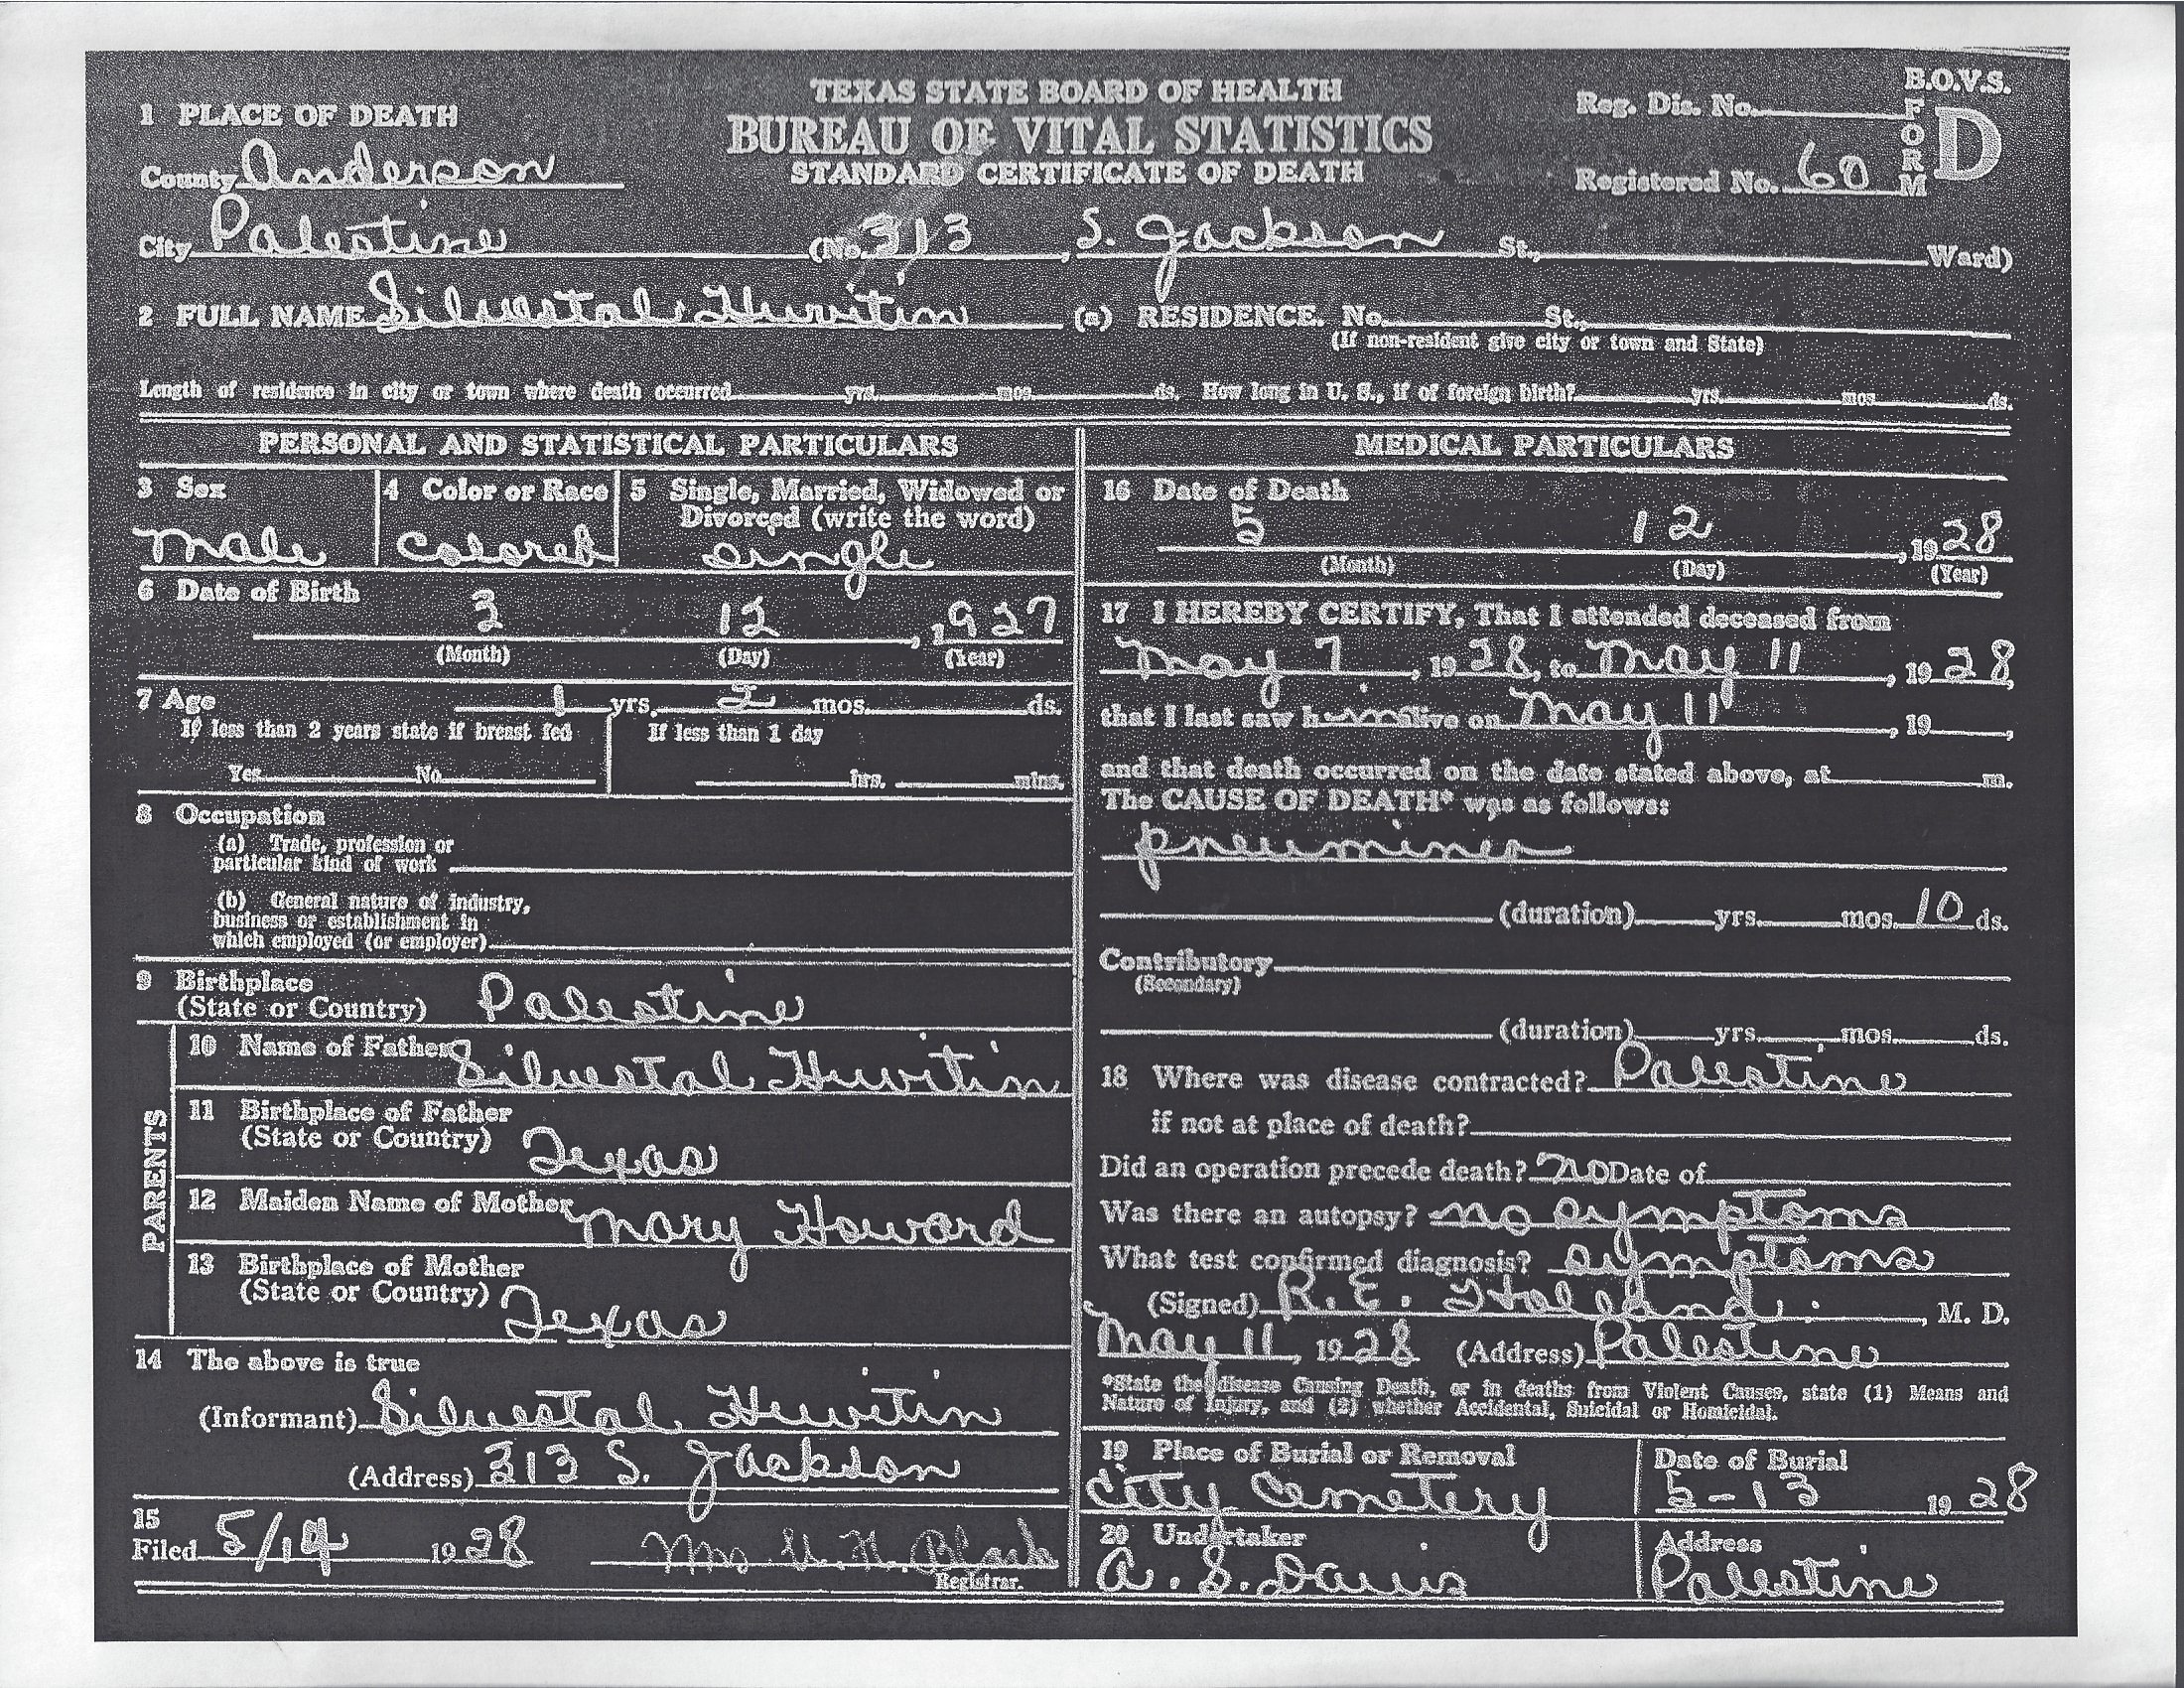 TEXAS STATE BOARD OF HEALTH
BUREAU OF VITAL STATISTICS
STANDARD CERTIFICATE OF DEATH
B.O.V.S.
FORM D
Reg. Dis. No.
Registered No. 60
1 PLACE OF DEATH
County Anderson
City Palestine (No. 313, S. Jackson St., Ward)
2 FULL NAME Silvestal Huvitin (a) RESIDENCE. No. St.,
(If non-resident give city or town and State)
Length of residence in city or town where death occurred yrs. mos. ds. How long in U. S., if of foreign birth? yrs. mos. ds.
PERSONAL AND STATISTICAL PARTICULARS
3 Sex
male
4 Color or Race
colored
5 Single, Married, Widowed or
Divorced (write the word)
single
6 Date of Birth
3 12, 1927
(Month) (Day) (Year)
7 Age 1 yrs. 2 mos. ds.
If less than 2 years state if breast fed
Yes No
If less than 1 day
hrs. mins.
8 Occupation
(a) Trade, profession or
particular kind of work
(b) General nature of industry,
business or establishment in
which employed (or employer)
9 Birthplace
(State or Country) Palestine
PARENTS
10 Name of Father Silvestal Huvitin
11 Birthplace of Father
(State or Country) Texas
12 Maiden Name of Mother Mary Howard
13 Birthplace of Mother
(State or Country) Texas
14 The above is true
(Informant) Silvestal Huvitin
(Address) 313 S. Jackson
15
Filed 5/14 1928 Mrs Black
Registrar.
MEDICAL PARTICULARS
16 Date of Death
5 12, 1928
(Month) (Day) (Year)
17 I HEREBY CERTIFY, That I attended deceased from
May 7, 1928, to May 11, 1928,
that I last saw him alive on May 11, 19,
and that death occurred on the date stated above, at m.
The CAUSE OF DEATH* was as follows:
pneuminea
(duration) yrs. mos. 10 ds.
Contributory
(Secondary)
(duration) yrs. mos. ds.
18 Where was disease contracted? Palestine
if not at place of death?
Did an operation precede death? no Date of
Was there an autopsy? no symptoms
What test confirmed diagnosis? symptoms
(Signed) R. E. Holland, M. D.
May 11, 1928 (Address) Palestine
*State the disease Causing Death, or in deaths from Violent Causes, state (1) Means and
Nature of Injury, and (2) whether Accidental, Suicidal or Homicidal.
19 Place of Burial or Removal
City Cemetery
Date of Burial
5-13 1928
20 Undertaker
A. S. Davis
Address
Palestine